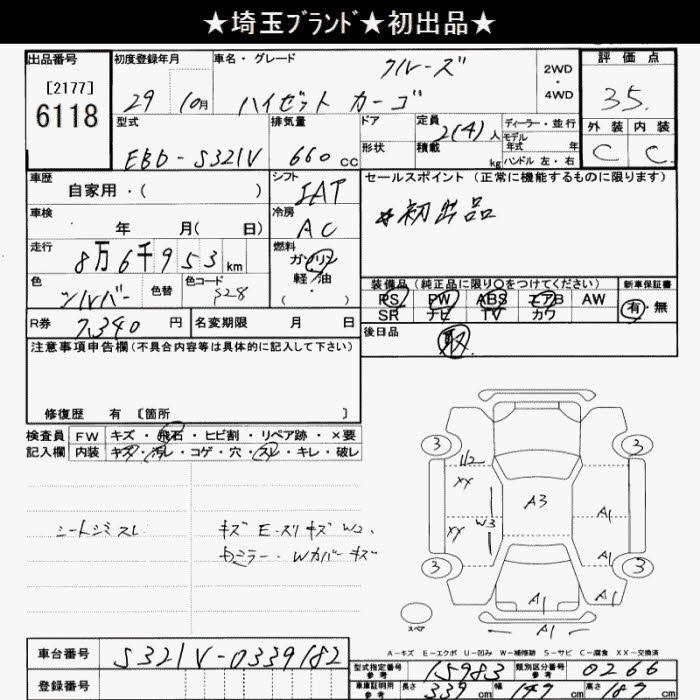 ★埼玉ﾌﾞﾗﾝﾄﾞ★初出品★
出品番号
[2177]
6118
初度登録年月
29 10月
車名・グレード
クルーズ
ハイゼット カーゴ
2WD
・
4WD
評価点
3.5.
外装 内装
C C
型式
EBD-S321V
排気量
660 CC
ドア
形状
定員
2(4) 人
積載
kg
ディーラー・並行
モデル
年式 年
ハンドル 左・右
車歴
自家用・( )
シフト
IAT
セールスポイント(正常に機能するものに限ります)
初出品
車検
年 月( 日)
冷房
AC
走行
8万6千953 km
燃料
ガソリン
軽・油
( ・ )
色
シルバー
色替
色コード
S28
装備品(純正品に限り○をつけてください)
PS PW ABS エアB AW
SR ナビ TV カワ
新車保証書
有・無
R券
7,340 円
名変期限 月 日
後日品
取
注意事項申告欄(不具合内容等は具体的に記入して下さい)
修復歴 有 [箇所 ]
検査員
記入欄
FW キズ・飛石・ヒビ割・リペア跡・×要
内装 キズ・汚レ・コゲ・穴・スレ・キレ・破レ
シートシミスレ
キズ E.スリキズ W2、
ミラー、Wカバーキズ
3 3
U2
XX
A3
XX
W3
A1
A1
3 3
A1
A1
スペア
A-キズ E-エクボ U-凹み W-補修跡 S-サビ C-腐食 XX-交換済
車台番号
S321V-0339182
登録番号
型式指定番号
参考
15983
類別区分番号
参考
0266
車車証明用
参考
長さ 339 cm 幅 147 cm 高さ 187 cm